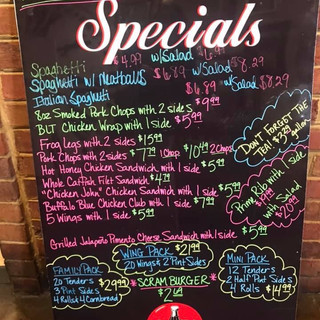 Specials
Spaghetti $4.99 w/Salad
Spaghetti w/ Meatballs $6.89 w/Salad $8.29
Italian Spaghetti $6.89 w/Salad $8.29
8oz Smoked Pork Chops with 2 sides $9.99
BLT Chicken Wrap with 1 side $5.99
Frog Legs with 2 sides $15.99
Pork Chops with 2 sides $7.79 1 Chop $10.49 2 Chops
Hot Honey Chicken Sandwich with 1 side
Whole Catfish Filet Sandwich $4.79
"Chicken John" Chicken Sandwich with 1 side $5.99
Buffalo Blue Chicken Club with 1 side $7.99
5 Wings with 1 side $5.99
Grilled Jalapeño Pimento Cheese Sandwich with 1 side $5.99
DON'T FORGET THE
TEA! $3.29
gallon
Prime Rib with 1 side
with Salad
FAMILY PACK
20 Tenders $29.99
3 Pint Sides
4 Rolls & 4 Cornbread
WING PACK $21.99
20 Wings & 2 Pint Sides
*SCRAM BURGER*
MINI PACK
12 Tenders
2 Half Pint Sides
4 Rolls $14.99